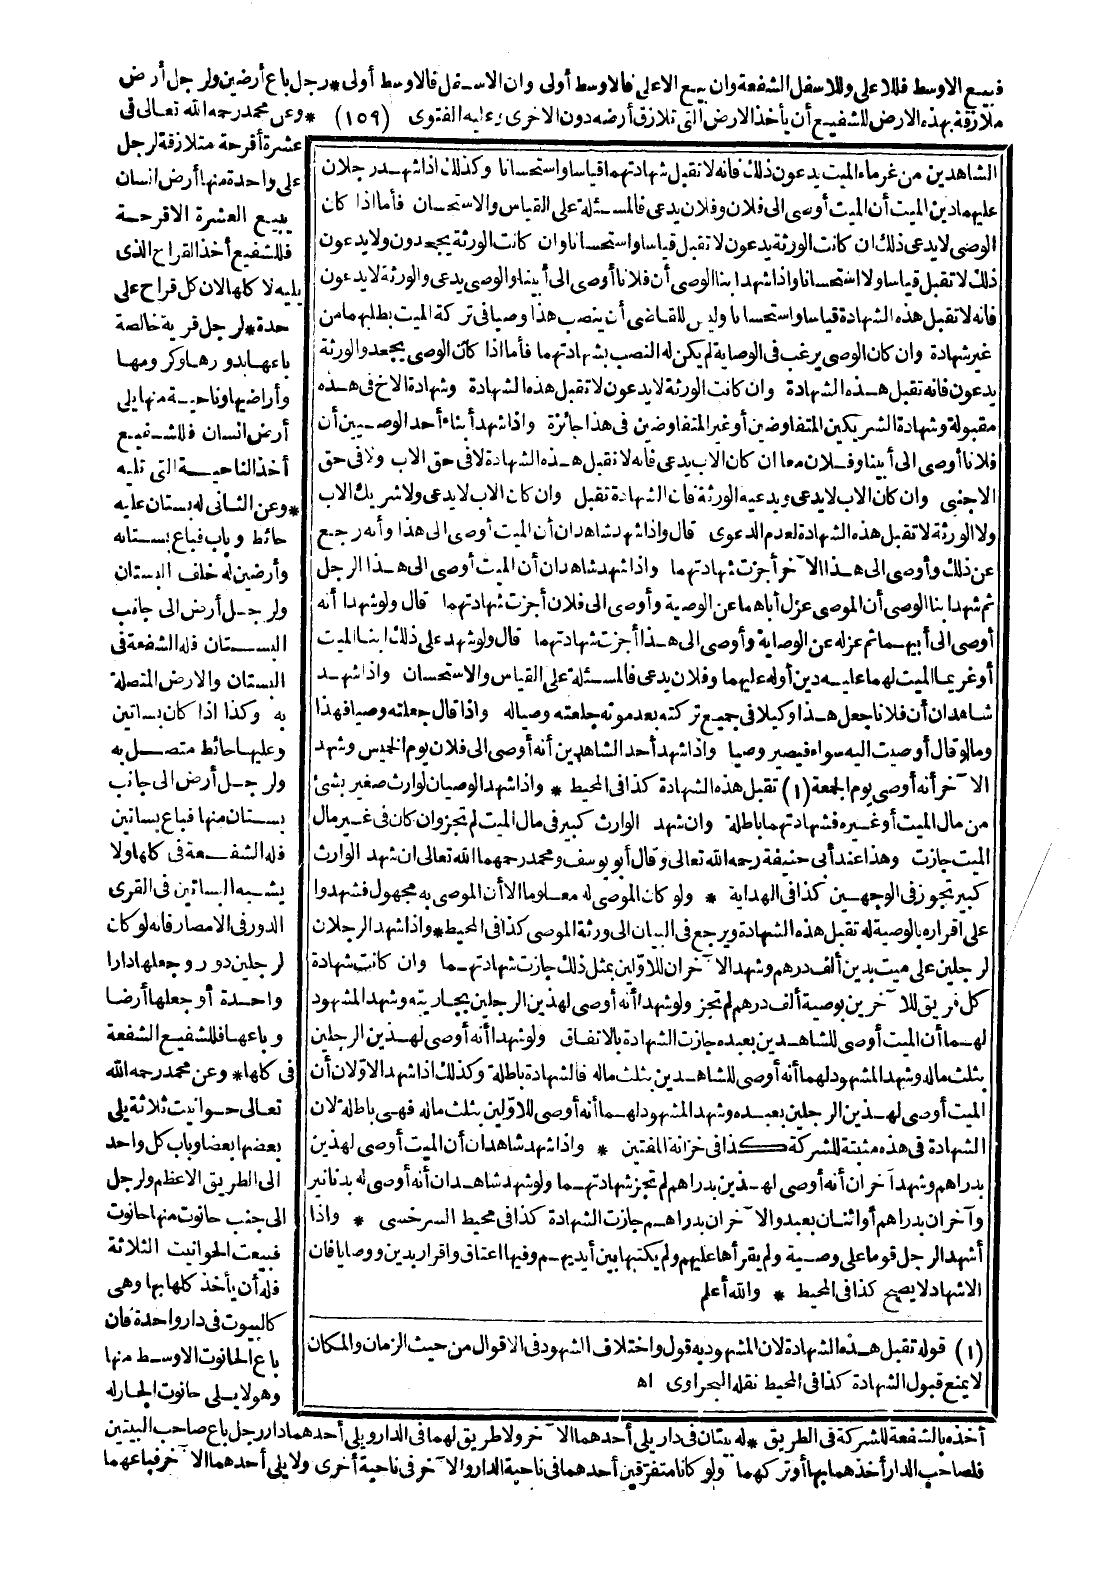 فبيع الاوسط فللاعلى وللاسفل الشفعة وان بيع الاعلى فالاوسط أولى وان الاسفل فالاوسط أولى * رجل باع أرضين ولرجل أرض
ملازقة بهذه الارض للشفيع أن يأخذ الارض التى تلازق أرضه دون الاخرى وعليه الفتوى (١٥٩) * وعن محمد رحمه الله تعالى فى
عشرة أقرحة متلازقة لرجل
على واحدة منها أرض انسان
يبيع العشرة الاقرحة
فللشفيع أخذ القراح الذى
يليه لا كلها لان كل قراح على
حدة * لرجل قرية خالصة
باعها بدورها وكرومها
وأراضيها وناحية منها يلى
أرض انسان فللشفيع
أخذ الناحية التى تليه
* وعن الثانى له بستان عليه
حائط وباب فباع بستانه
وأرضين له خلف البستان
ولرجل أرض الى جانب
البستان فله الشفعة فى
البستان والارض المتصلة
به وكذا اذا كان بساتين
وعليها حائط متصل به
ولرجل أرض الى جانب
بستان منها فباع بساتين
فله الشفعة فى كلها ولا
يشبه البساتين فى القرى
الدور فى الامصار فانه لو كان
لرجلين دور وجعلها دارا
واحدة أو جعلها أرضا
وباعها فللشفيع الشفعة
فى كلها * وعن محمد رحمه الله
تعالى حوانيت ثلاثة يلى
بعضها بعضا وباب كل واحد
الى الطريق الاعظم ولرجل
الى جنب حانوت منها حانوت
فبيعت الحوانيت الثلاثة
فله أن يأخذ كلها بها وهى
كالبيوت فى دار واحدة فان
باع الحانوت الاوسط منها
وهو لا يلى حانوت الجار له
الشاهدين من غرماء الميت يدعون ذلك فانه لا تقبل شهادتهما قياسا واستحسانا وكذلك اذا شهد رجلان
عليهما دين الميت أن الميت أوصى الى فلان وفلان يدعى فالمسئلة على القياس والاستحسان فأما اذا كان
الوصى لا يدعى ذلك ان كانت الورثة يدعون لا تقبل قياسا واستحسانا وان كانت الورثة يجحدون ولا يدعون
ذلك لا تقبل قياسا ولا استحسانا واذا شهد ابنا الوصى أن فلانا أوصى الى أبينا والوصى يدعى والورثة لا يدعون
فانه لا تقبل هذه الشهادة قياسا واستحسانا وليس للقاضى أن ينصب هذا وصيا فى تركة الميت بطلبهما من
غير شهادة وان كان الوصى يرغب فى الوصاية لم يكن له النصب بشهادتهما فأما اذا كان الوصى يجحد والورثة
يدعون فانه تقبل هذه الشهادة وان كانت الورثة لا يدعون لا تقبل هذه الشهادة وشهادة الاخ فى هذه
مقبولة وشهادة الشريكين المتفاوضين أو غير المتفاوضين فى هذا جائزة واذا شهد أبناء أحد الوصيين أن
فلانا أوصى الى أبينا وفلان معا ان كان الاب يدعى فانه لا تقبل هذه الشهادة لا فى حق الاب ولا فى حق
الاجنبى وان كان الاب لا يدعى ويدعيه الورثة فان الشهادة تقبل وان كان الاب لا يدعى ولا شريك الاب
ولا الورثة لا تقبل هذه الشهادة لعدم الدعوى قال واذا شهد شاهدان أن الميت أوصى الى هذا وأنه رجع
عن ذلك وأوصى الى هذا الآخر أجزت شهادتهما واذا شهد شاهدان أن الميت أوصى الى هذا الرجل
ثم شهد ابنا الوصى أن الموصى عزل أباهما عن الوصية وأوصى الى فلان أجزت شهادتهما قال ولو شهدا أنه
أوصى الى أبيهما ثم عزله عن الوصاية وأوصى الى هذا أجزت شهادتهما قال ولو شهد على ذلك ابنا الميت
أو غريما الميت لهما عليه دين أو له عليهما وفلان يدعى فالمسئلة على القياس والاستحسان واذا شهد
شاهدان أن فلانا جعل هذا وكيلا فى جميع تركته بعد موته جعلته وصيا له واذا قال جعلته وصيا فهذا
وما لو قال أوصيت اليه سواء فيصير وصيا واذا شهد أحد الشاهدين أنه أوصى الى فلان يوم الخميس وشهد
الآخر أنه أوصى يوم الجمعة (١) تقبل هذه الشهادة كذا فى المحيط * واذا شهد الوصيان لوارث صغير بشئ
من مال الميت أو غيره فشهادتهما باطلة وان شهد الوارث كبير فى مال الميت لم تجز وان كان فى غير مال
الميت جازت وهذا عند أبى حنيفة رحمه الله تعالى وقال أبو يوسف ومحمد رحمهما الله تعالى ان شهد الوارث
كبير تجوز فى الوجهين كذا فى الهداية * ولو كان الموصى له معلوما الا أن الموصى به مجهول فشهدوا
على اقراره بالوصية له تقبل هذه الشهادة ويرجع فى البيان الى ورثة الموصى كذا فى المحيط * واذا شهد الرجلان
لرجلين على ميت بدين ألف درهم وشهد الآخران للاولين بمثل ذلك جازت شهادتهما وان كانت شهادة
كل فريق للآخرين بوصية ألف درهم لم تجز ولو شهدا أنه أوصى لهذين الرجلين بجاريته وشهد المشهود
لهما أن الميت أوصى للشاهدين بعبده جازت الشهادة بالاتفاق ولو شهدا أنه أوصى لهذين الرجلين
بثلث ماله وشهد المشهود لهما أنه أوصى للشاهدين بثلث ماله فالشهادة باطلة وكذلك اذا شهد الاولان أن
الميت أوصى لهذين الرجلين بعبده وشهد المشهود لهما أنه أوصى للاولين بثلث ماله فهى باطلة لان
الشهادة فى هذه مثبتة للشركة كذا فى خزانة المفتين * واذا شهد شاهدان أن الميت أوصى لهذين
بدراهم وشهد آخران أنه أوصى لهذين بدراهم لم تجز شهادتهما ولو شهد شاهدان أنه أوصى له بدنانير
وآخران بدراهم أو اثنان بعبد والآخران بدراهم جازت الشهادة كذا فى محيط السرخسى * واذا
أشهد الرجل قوما على وصية ولم يقرأها عليهم ولم يكتبها بين أيديهم وفيها اعتاق واقرار بدين ووصايا فان
الاشهاد لا يصح كذا فى المحيط * والله أعلم
(١) قوله تقبل هذه الشهادة لان المشهود به قول واختلاف الشهود فى الاقوال من حيث الزمان والمكان
لا يمنع قبول الشهادة كذا فى المحيط نقله البحراوى اه
أخذه بالشفعة للشركة فى الطريق * له بيتان فى دار يلى أحدهما الآخر ولا طريق لهما فى الدار ويلى أحدهما دار رجل باع صاحب البيتين
فلصاحب الدار أخذهما بها أو تركهما ولو كانا متفرقين أحدهما فى ناحية الدار والآخر فى ناحية أخرى ولا يلى أحدهما الآخر فباعهما